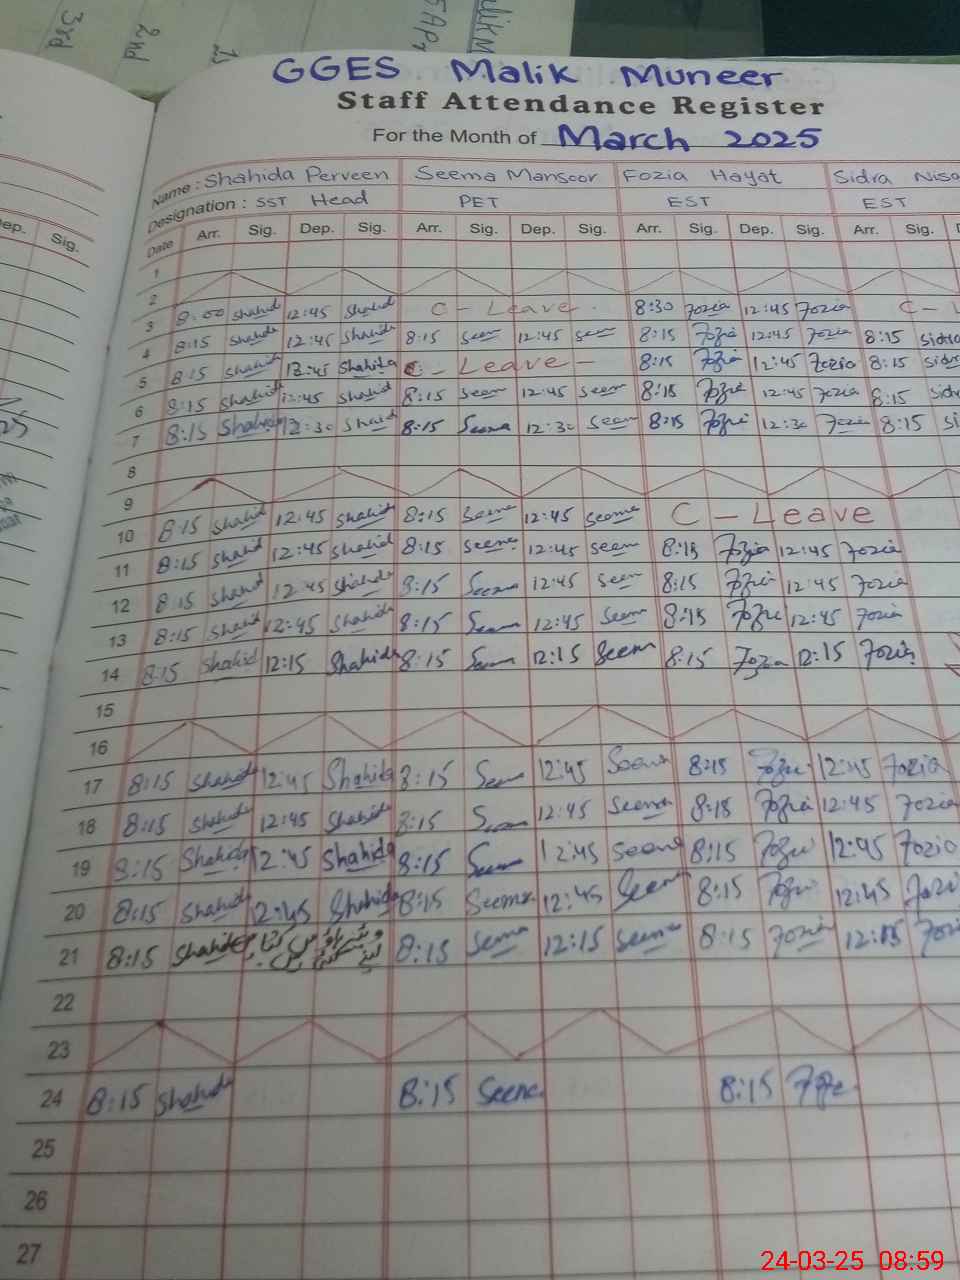 3rd
2nd
GGES Malik Muneer
Staff Attendance Register
For the Month of March 2025
Name : Shahida Perveen Seema Mansoor Fozia Hayat Sidra Nisa
Designation : SST Head PET EST EST
Date Arr. Sig. Dep. Sig. Arr. Sig. Dep. Sig. Arr. Sig. Dep. Sig. Arr. Sig.
Sig.
1
2
3 8:00 Shahid 12:45 Shahid C - Leave 8:30 Fozia 12:45 Fozia C - L
4 8:15 Shahid 12:45 Shahid 8:15 Seem 12:45 Seem 8:15 Fozia 12:45 Fozia 8:15 Sidra
5 8:15 Shahid 12:45 Shahida C - Leave - 8:15 Fozia 12:45 Fozia 8:15 Sidr
6 8:15 Shahid 12:45 Shahid 8:15 Seem 12:45 Seem 8:15 Fozia 12:45 Fozia 8:15 Sidr
7 8:15 Shahid 12:30 Shahid 8:15 Seema 12:30 Seem 8:15 Fozia 12:30 Fozia 8:15 Si
8
9
10 8:15 Shahid 12:45 Shahid 8:15 Seema 12:45 Seema C - Leave
11 8:15 Shahid 12:45 Shahid 8:15 Seema 12:45 Seem 8:15 Fozia 12:45 Fozia
12 8:15 Shahid 12:45 Shahida 8:15 Seema 12:45 Seem 8:15 Fozia 12:45 Fozia
13 8:15 Shahid 12:45 Shahida 8:15 Seema 12:45 Seem 8:15 Fozia 12:45 Fozia
14 8:15 Shahid 12:15 Shahida 8:15 Seema 12:15 Seem 8:15 Fozia 12:15 Fozia
15
16
17 8:15 Shahida 12:45 Shahida 8:15 Seema 12:45 Seema 8:15 Fozia 12:45 Fozia
18 8:15 Shahida 12:45 Shahida 8:15 Seema 12:45 Seema 8:15 Fozia 12:45 Fozia
19 8:15 Shahida 12:45 Shahida 8:15 Seema 12:45 Seema 8:15 Fozia 12:45 Fozia
20 8:15 Shahida 12:45 Shahida 8:15 Seema 12:45 Seem 8:15 Fozia 12:45 Fozi
21 8:15 Shahida 8:15 Seema 12:15 Seema 8:15 Fozia 12:15 Fozi
22
23
24 8:15 Shahida 8:15 Seema 8:15 Fozia
25
26
27
24-03-25 08:59